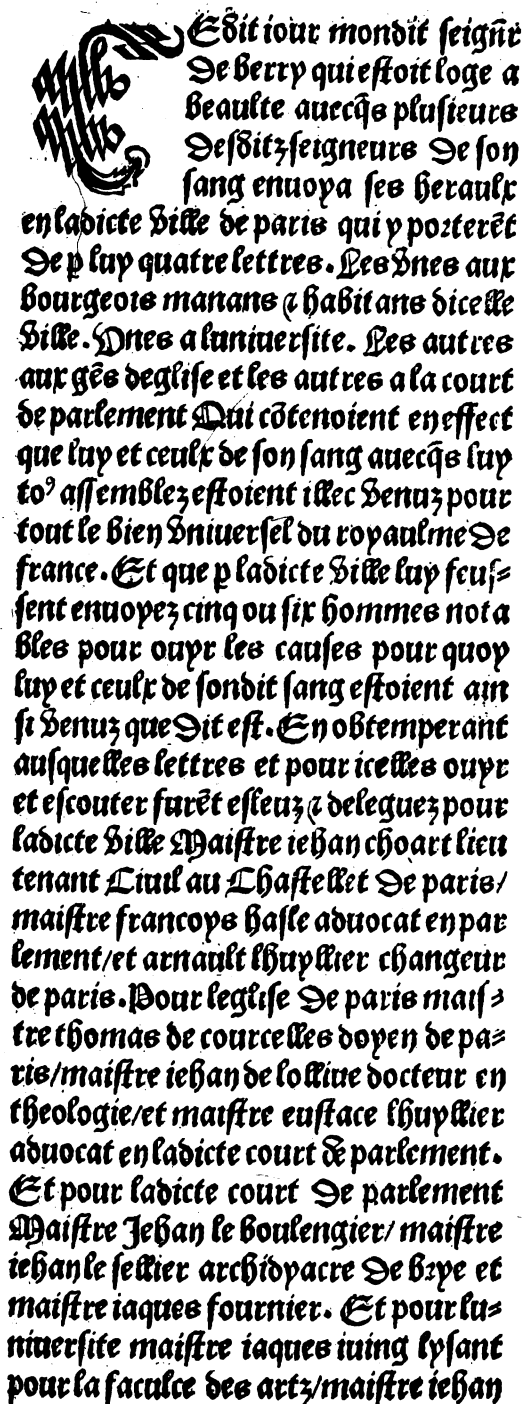 CEdit iour mondit seign̄r
de berry qui estoit loge a
beaulte auecq̄s plusieurs
desditz seigneurs de son
sang enuoya ses heraulx
en ladicte ville de paris qui y porterēt
de p̲ luy quatre lettres. Les vnes aux
bourgeois manans ⁊ habitans dicelle
ville. Vnes a luniuersite. Les autres
aux gēs deglise et les autres a la court
de parlement Qui cōtenoient en effect
que luy et ceulx de son sang auecq̄s luy
toꝰ assemblez estoient illec venuz pour
tout le bien vniuersel du royaulme de
france. Et que ꝑ ladicte ville luy feus⸗
sent enuoyez cinq ou six hommes nota
bles pour ouyr les causes pour quoy
luy et ceulx de sondit sang estoient ain
si venuz que dit est. En obtemperant
ausquelles lettres et pour icelles ouyr
et escouter furēt esleuz ⁊ deleguez pour
ladicte ville Maistre iehan choart lieu
tenant Ciuil au Chastellet de paris/
maistre francoys hasle aduocat en par
lement/et arnault lhuyllier changeur
de paris. Pour leglise de paris mais⸗
tre thomas de courcelles doyen de pa⸗
ris/maistre iehan de lolliue docteur en
theologie/et maistre eustace lhuyllier
aduocat en ladicte court de parlement.
Et pour ladicte court de parlement
Maistre Jehan le boulengier/ maistre
iehan le sellier archidyacre de brye et
maistre iaques fournier. Et pour lu⸗
niuersite maistre iaques iuing lysant
pour la faculce des artz/maistre iehan